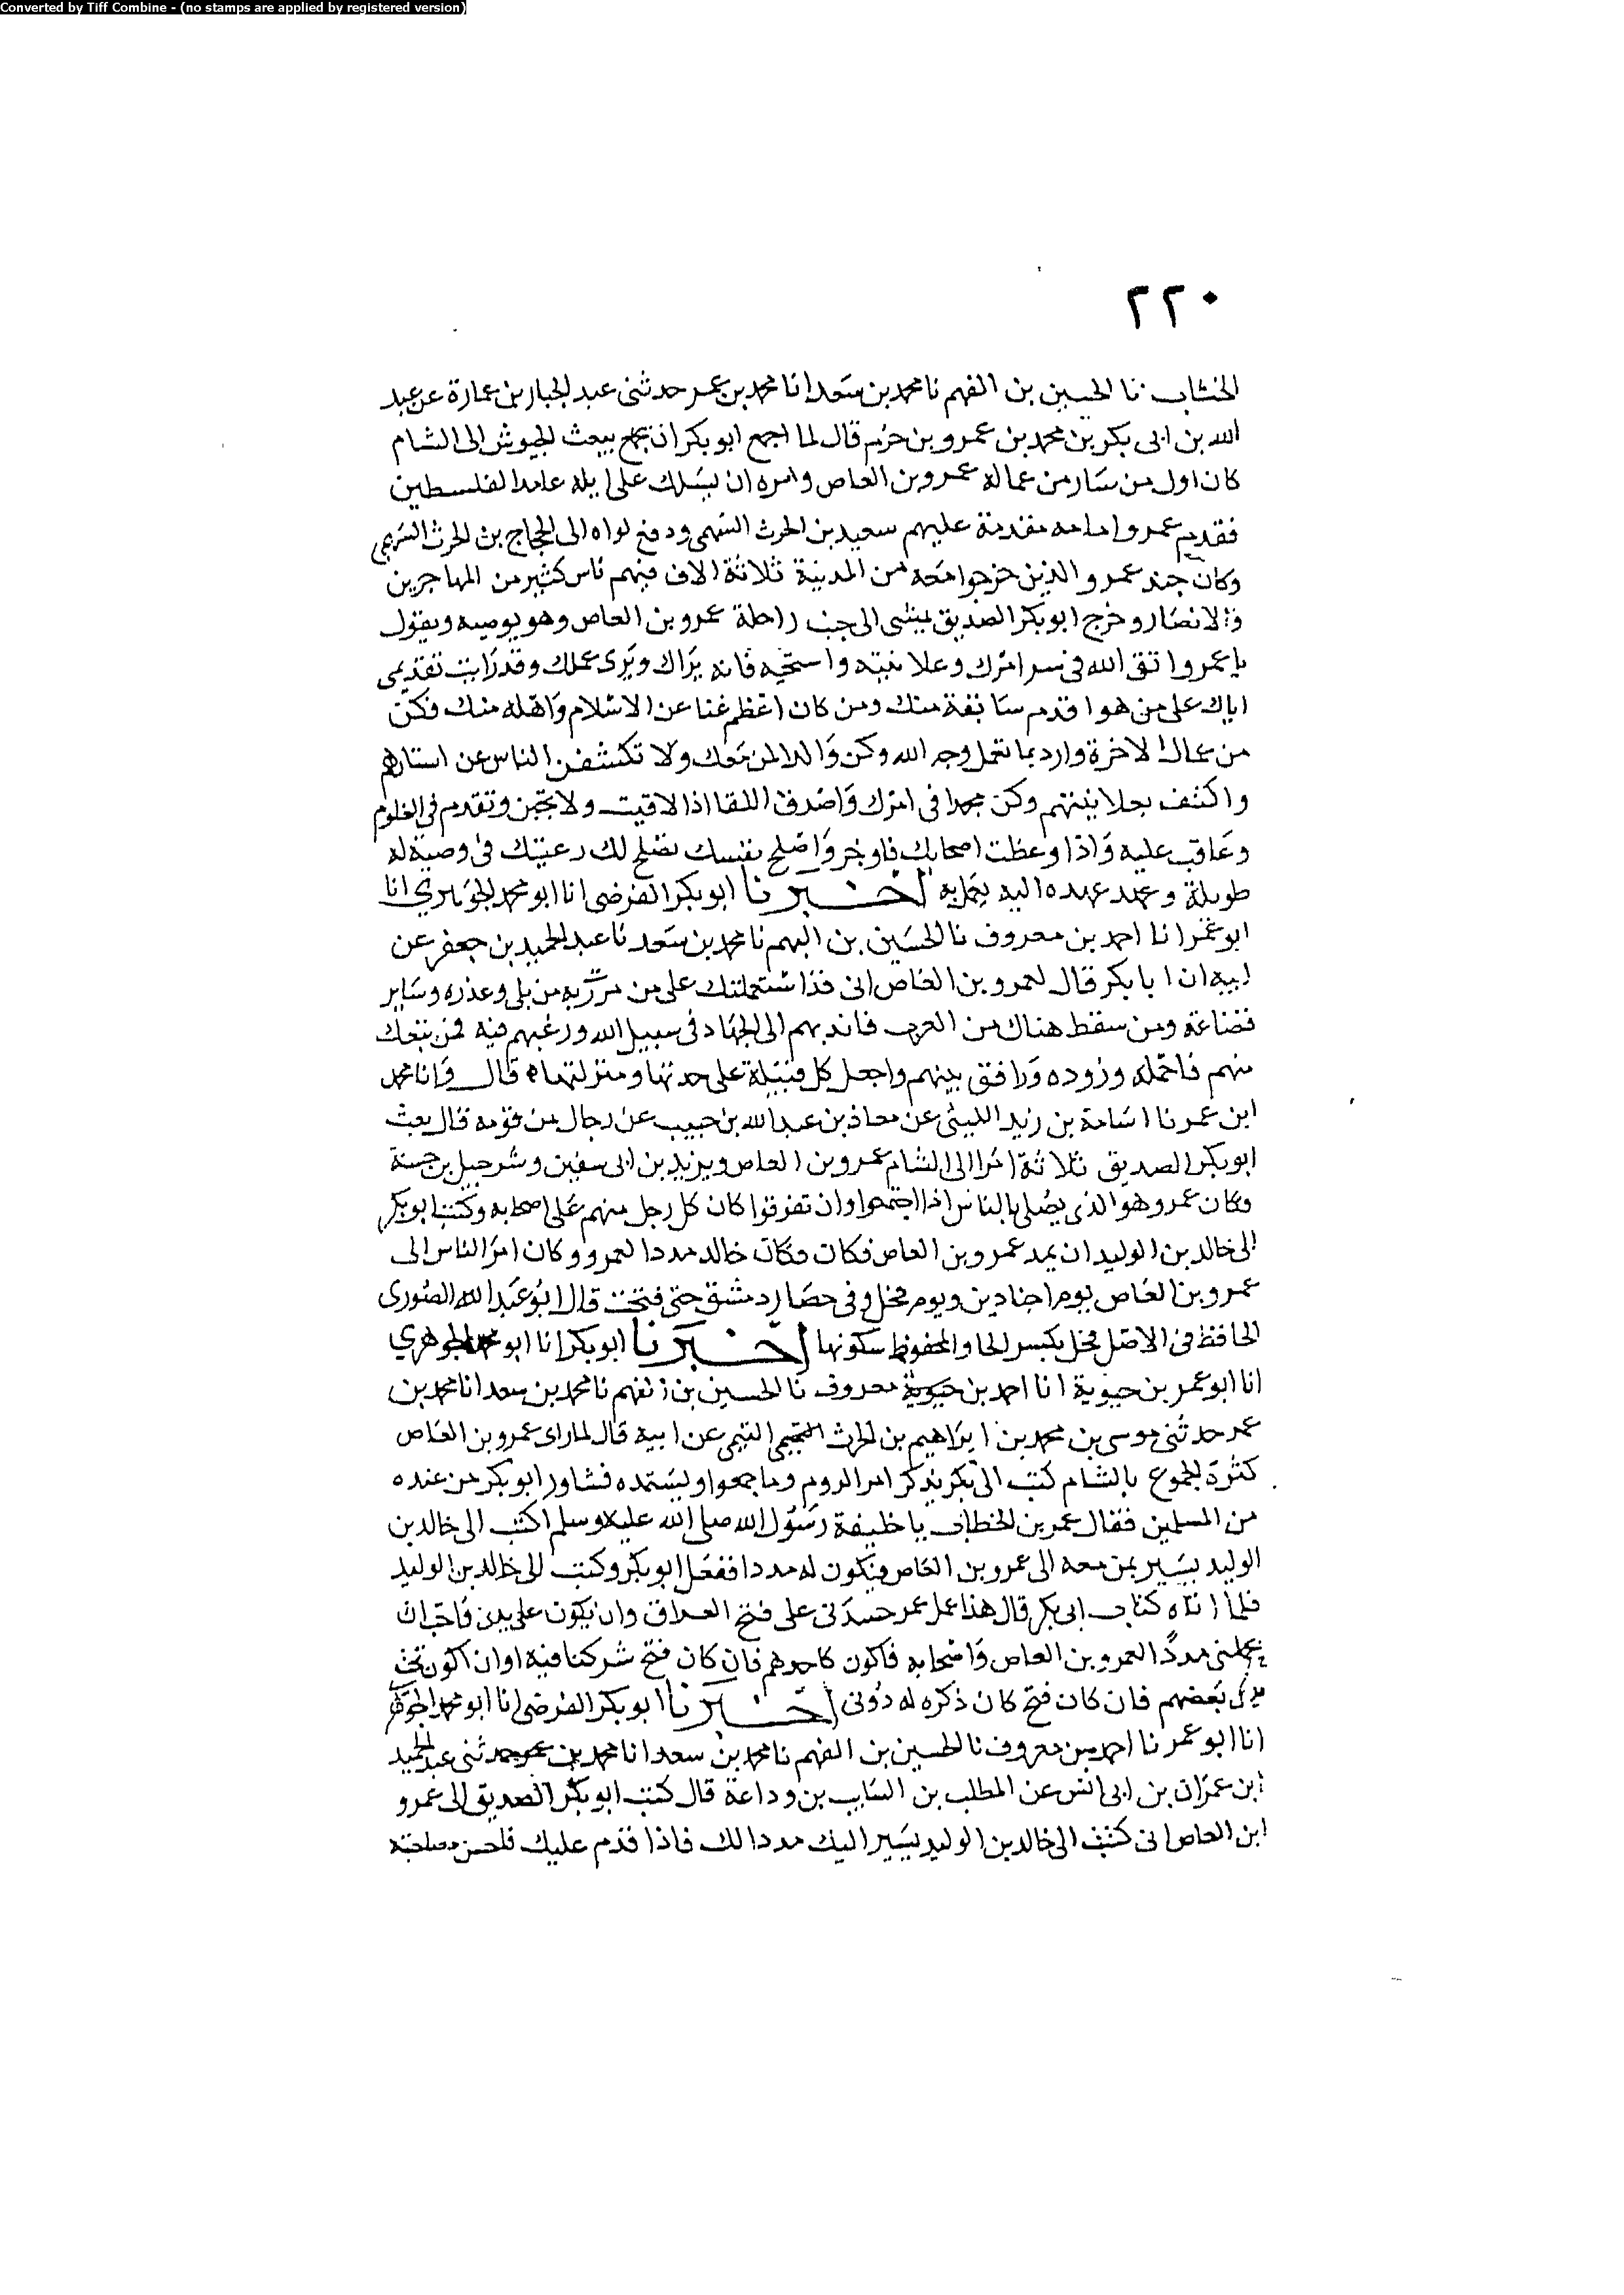 Converted by Tiff Combine - (no stamps are applied by registered version)
٢٢٠
الخشاب نا الحسين بن الفهم نا محمد بن سعد انا محمد بن عمر حدثنى عبد الجبار بن عمارة عن عبد
الله بن ابى بكر بن محمد بن عمرو بن حزم قال لما اجمع ابو بكر ان يبعث الجيوش الى الشام
كان اول من سار من عماله عمرو بن العاص وامره ان يسلك على ايله عامدا لفلسطين
فقدم عمرو امامه مقدمة عليهم سعيد بن الحرث السهمى ودفع لواه الى الحجاج بن الحرث السهمي
وكان جند عمرو الذين خرجوا معه من المدينة ثلاثة الاف فيهم ناس كثير من المهاجرين
والانصار وخرج ابو بكر الصديق يمشى الى جنب راحلة عمرو بن العاص وهو يوصيه ويقول
يا عمرو اتق الله فى سر امرك وعلانيته واستحيه فانه يراك ويرى عملك وقد رايت تقديمى
اياك على من هو اقدم سابقة منك ومن كان اعظم غنا عن الاسلام واهله منك فكن
من عمال الاخرة وارد بما تعمل وجه الله وكن والدا لمن معك ولا تكشفن الناس عن استارهم
واكتف بعلانيتهم وكن مجدا فى امرك واصدق اللقا اذا لاقيت ولا تجبن وتقدم فى الغلول
وعاقب عليه واذا وعظت اصحابك فاوجز واصلح نفسك تصلح لك رعيتك فى وصية له
طويلة وعهد عهده اليه يعمل به اخبرنا ابو بكر الفرضى انا ابو محمد الجوهري انا
ابو عمر انا احمد بن معروف نا الحسين بن الفهم نا محمد بن سعد نا عبد الحميد بن جعفر عن
ابيه ان ابا بكر قال لعمرو بن العاص انى قد استعملتك على من مررت به من بلى وعذره وساير
قضاعة ومن سقط هناك من العرب فاندبهم الى الجهاد فى سبيل الله ورغبهم فيه فمن تبعك
منهم فاحمله وزوده ورافق بينهم واجعل كل قبيلة على حدتها ومنزلتها ه قال وانا محمد
ابن عمر نا اسامة بن زيد الليثى عن معاذ بن عبد الله بن حبيب عن رجال من قومه قال بعث
ابو بكر الصديق ثلاثة امرا الى الشام عمرو بن العاص ويزيد بن ابى سفين وشرحبيل بن حسنة
وكان عمرو هو الذى يصلى بالناس اذا اجتمعوا وان تفرقوا كان كل رجل منهم على اصحابه وكتب ابو بكر
الى خالد بن الوليد ان يمد عمرو بن العاص فكان فكان خالد مددا لعمرو وكان امر الناس الى
عمرو بن العاص يوم اجنادين ويوم فحل وفى حصار دمشق حتى فتحت قال ابو عبد الله الصورى
الحافظ فى الاصل فحل بكسر الحا والمحفوظ سكونها اخبرنا ابو بكر انا ابو محمد الجوهري
انا ابو عمر بن حيوية انا احمد بن حيوية معروف نا الحسين بن الفهم نا محمد بن سعد انا محمد بن
عمر حدثنى موسى بن محمد بن ابراهيم بن الحرث التيمى عن ابيه قال لما راى عمرو بن العاص
كثرة الجموع بالشام كتب الى بكر يذكر امر الروم وما جمعوا ويستمده فشاور ابو بكر من عنده
من المسلمين فقال عمر بن الخطاب يا خليفة رسول الله صلى الله عليه وسلم اكتب الى خالد بن
الوليد يسير بمن معه الى عمرو بن العاص فيكون له مددا ففعل ابو بكر وكتب الى خالد بن الوليد
فلما اتاه كتاب ابى بكر قال هذا عمل عمر حسدنى على فتح العراق وان يكون على يدى فاحب ان
يجعلنى مددا لعمرو بن العاص واصحابه فاكون كاحدهم فان كان فتح شركنا فيه او ان اكون تحت
يدى بعضهم فان كان فتح كان ذكره له دونى اخبرنا ابو بكر الفرضى انا ابو محمد الجوهري
انا ابو عمر نا احمد بن معروف نا الحسين بن الفهم نا محمد بن سعد انا محمد بن عمر حدثنى عبد الحميد
ابن عمران بن ابى انس عن المطلب بن السايب بن وداعة قال كتب ابو بكر الصديق الى عمرو
ابن العاص انى كتبت الى خالد بن الوليد يسير اليك مددا لك فاذا قدم عليك فاحسن مصاحبته